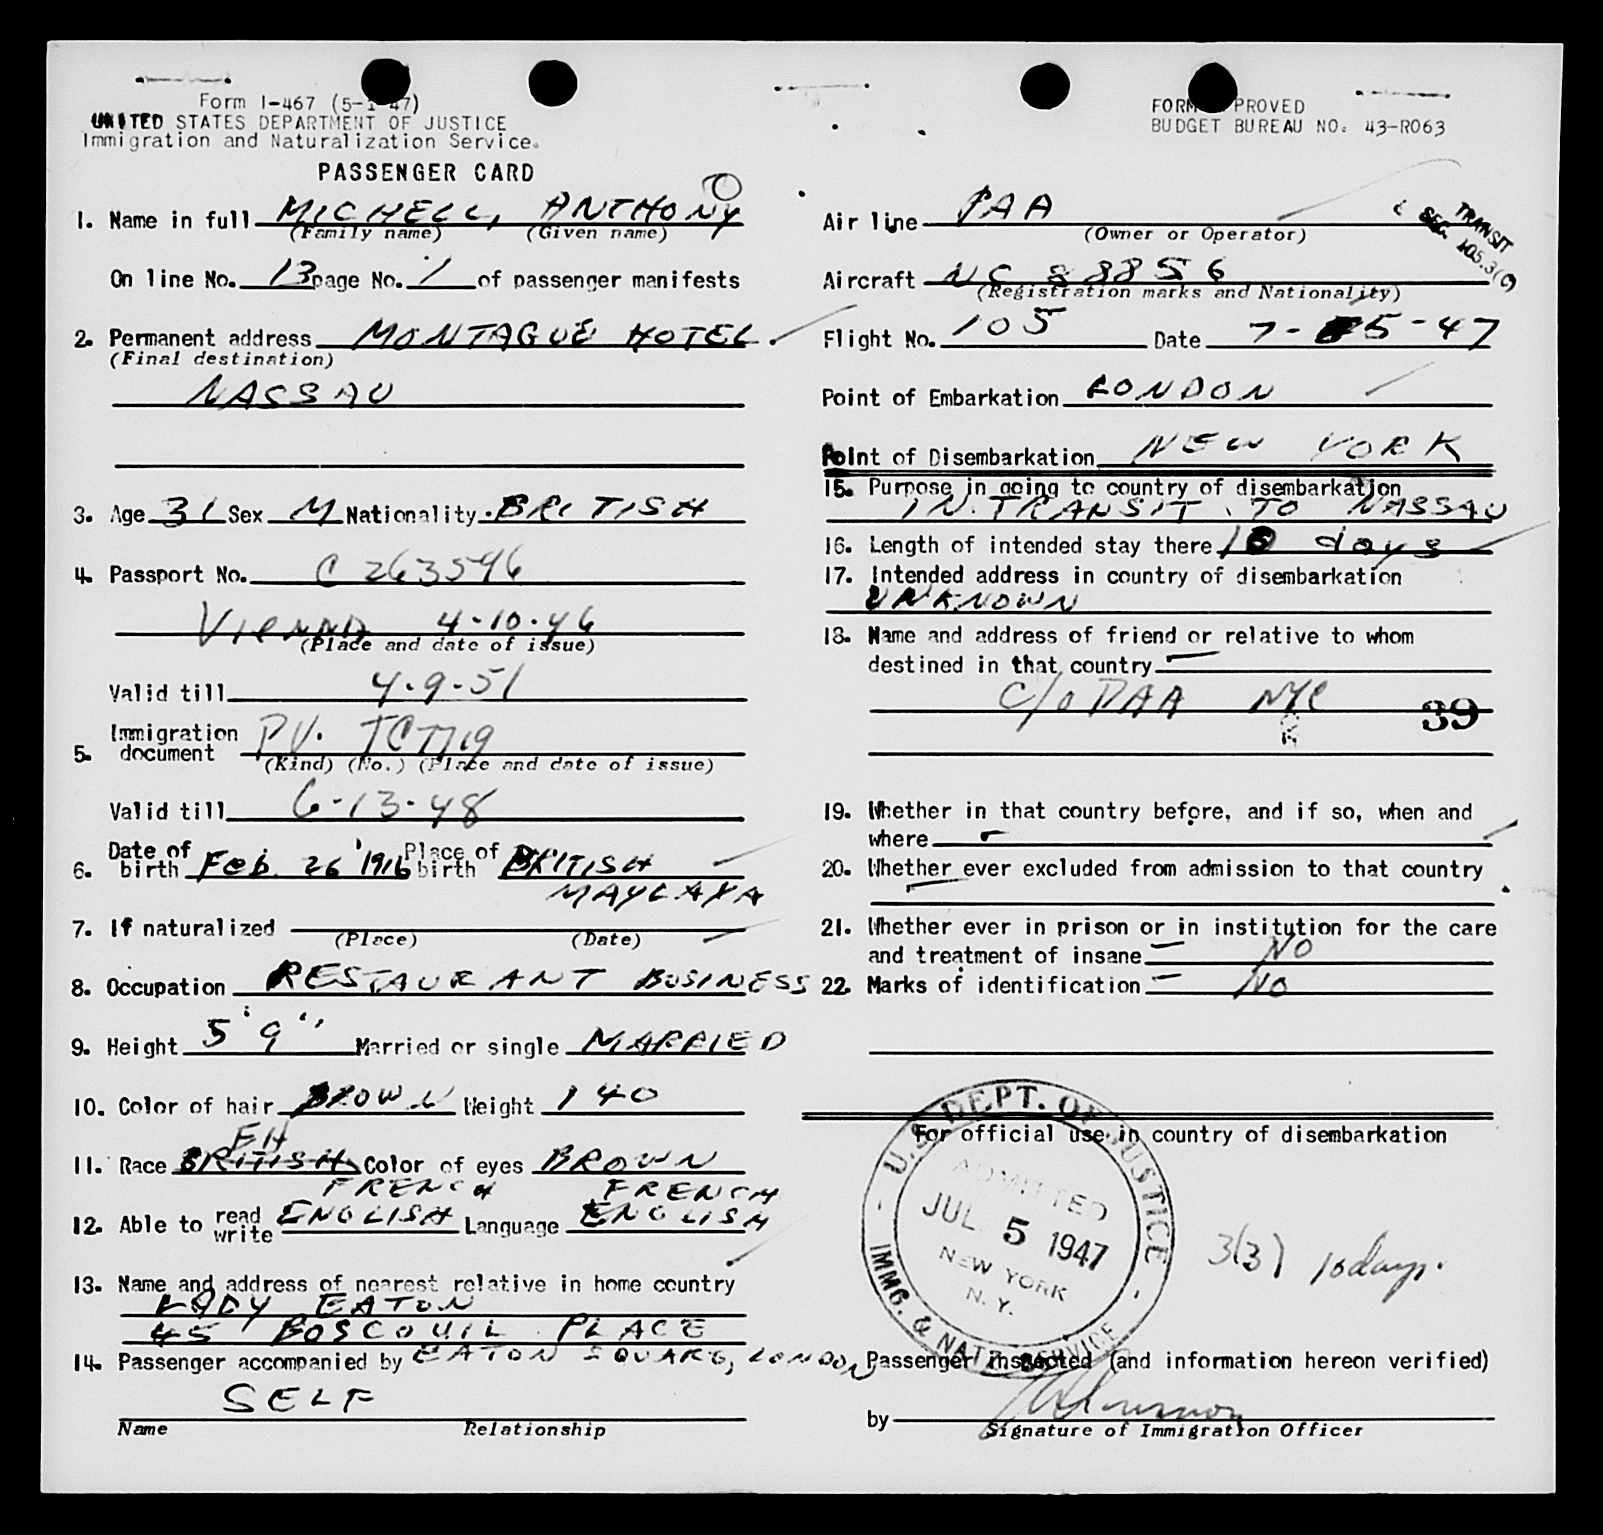 Form I-467 (5-1-47)
UNITED STATES DEPARTMENT OF JUSTICE
Immigration and Naturalization Service.
PASSENGER CARD
1. Name in full MICHELL, ANTHONY
(Family name) (Given name)
On line No. 13 page No. 1 of passenger manifests
2. Permanent address MONTAGUE HOTEL.
(Final destination)
NASSAU
3. Age 31 Sex M Nationality BRITISH
4. Passport No. C 263546
Vienna 4-10-46
(Place and date of issue)
Valid till 4-9-51
5. Immigration document PV. TC
(Kind) (No.) (Place and date of issue)
Valid till 6-13-48
6. Date of birth Feb. 26 1916 Place of birth BRITISH
MAYLAYA
7. If naturalized
(Place) (Date)
8. Occupation RESTAURANT BUSINESS
9. Height 5' 9" Married or single MARRIED
10. Color of hair BROWN Weight 140
EH
11. Race BRITISH Color of eyes BROWN
FRENCH FRENCH
12. Able to read write ENGLISH Language ENGLISH
13. Name and address of nearest relative in home country
LADY EATON
45 PLACE
14. Passenger accompanied by EATON SQUARE, LONDON
SELF
Name Relationship
FORM APPROVED
BUDGET BUREAU NO. 43-R063
TRANSIT
SEC. 105.3(c)
Air line PAA
(Owner or Operator)
Aircraft NC 88856
(Registration marks and Nationality)
Flight No. 105 Date 7-5-47
Point of Embarkation LONDON
Point of Disembarkation NEW YORK
15. Purpose in going to country of disembarkation
IN TRANSIT TO NASSAU
16. Length of intended stay there 10 days
17. Intended address in country of disembarkation
UNKNOWN
18. Name and address of friend or relative to whom
destined in that country
c/o PAA NYC
39
19. Whether in that country before, and if so, when and
where
20. Whether ever excluded from admission to that country
21. Whether ever in prison or in institution for the care
and treatment of insane NO
22. Marks of identification NO
For official use in country of disembarkation
U.S. DEPT. OF JUSTICE
ADMITTED
JUL 5 1947
NEW YORK
N. Y.
IMMG. & NATZ. SERVICE
3(3) 10 days.
Passenger inspected (and information hereon verified)
by
Signature of Immigration Officer